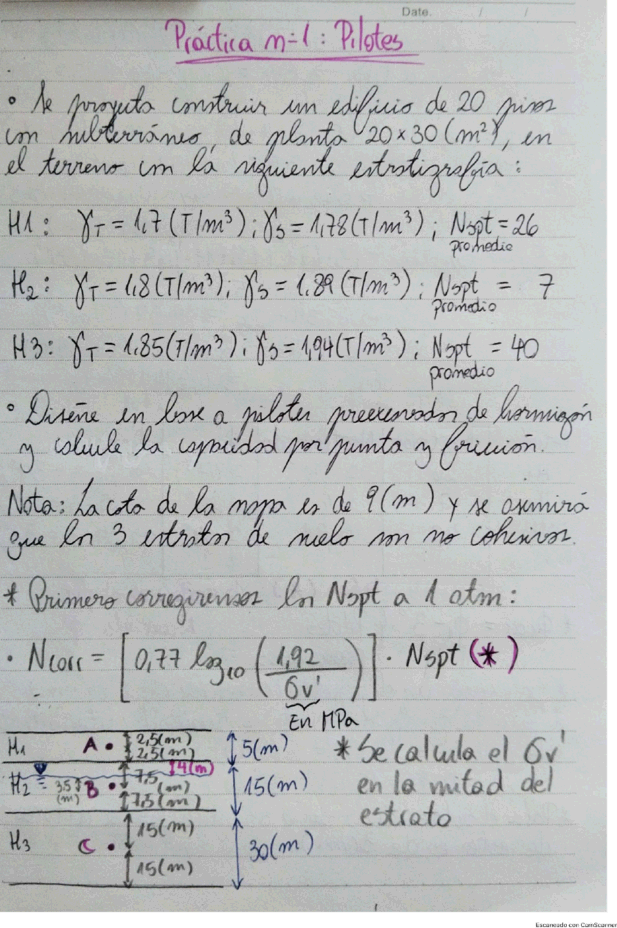 Date. / /
Práctica n=1 : Pilotes
• Se proyecta construir un edificio de 20 pisos
con subterráneo, de planta 20 x 30 (m²), en
el terreno con la siguiente estratigrafía :
H1 : γT = 1,7 (T/m³) ; γS = 1,78 (T/m³) ; Nspt = 26
promedio
H2 : γT = 1.8 (T/m³) ; γS = 1.89 (T/m³) ; Nspt = 7
promedio
H3 : γT = 1.85 (T/m³) ; γS = 1,94 (T/m³) ; Nspt = 40
promedio
• Diseñe en base a pilotes preexcavados de hormigón
y calcule la capacidad por punta y fricción.
Nota: La cota de la napa es de 9 (m) y se asumirá
que los 3 estratos de suelo son no cohesivos.
* Primero corregiremos los Nspt a 1 atm :
• Ncorr = [0,77 log10 (1,92 / σv')] · Nspt (*)
En MPa
H1 A • 2,5(m) 5(m)
2,5(m)
H2 3.5 (m) B • 7,5 (m) 4(m) 15(m)
7,5(m)
H3 C • 15(m) 30(m)
15(m)
* Se calcula el σv'
en la mitad del
estrato
Escaneado con CamScanner